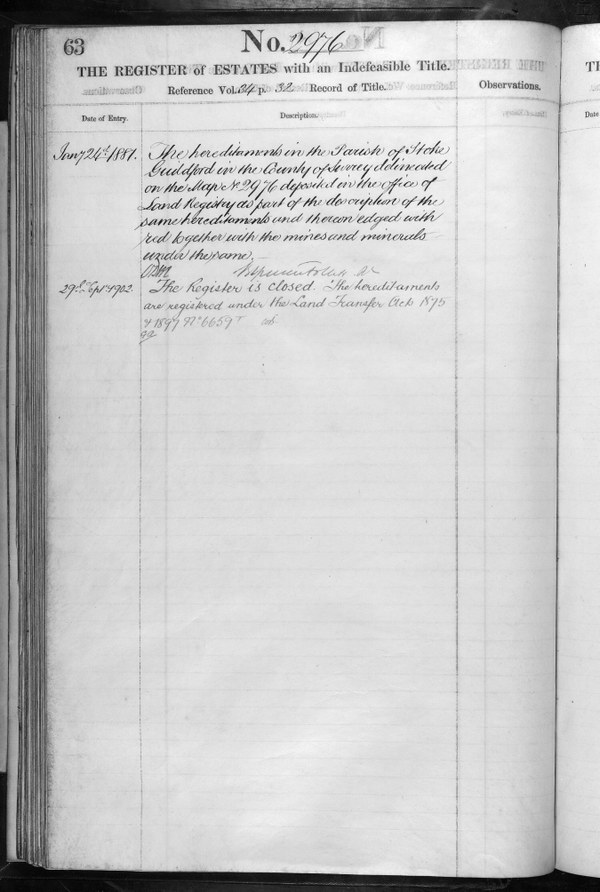 63
No. 2976
THE REGISTER of ESTATES with an Indefeasible Title.
Reference Vol. 24 p. 32 Record of Title.
Observations.
Date of Entry.
Description.
Jany 24th 1881.
The hereditaments in the Parish of Stoke
Guildford in the County of Surrey delineated
on the Map No 2976 deposited in the office of
Land Registry as part of the description of the
same hereditaments and thereon edged with
red together with the mines and minerals
under the same.
29th Sept 1902.
The Register is closed. The hereditaments
are registered under the Land Transfer Acts 1875
& 1897 No 6659
TH
Date